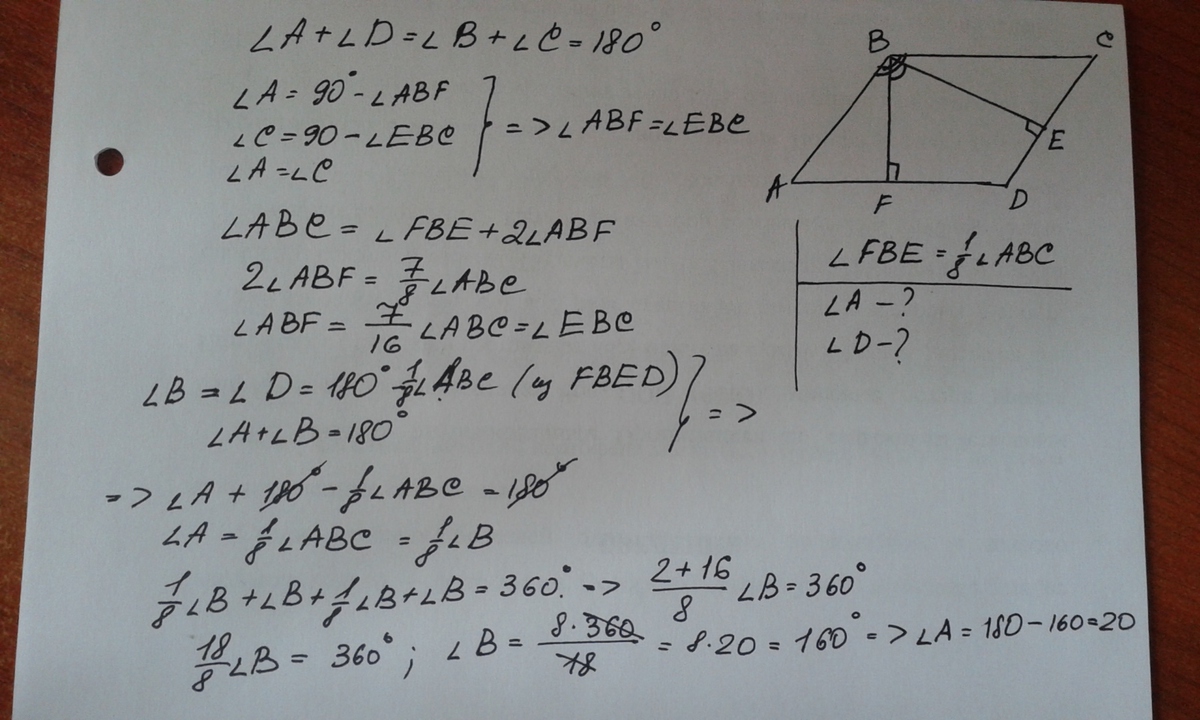 ∠A+∠D=∠B+∠C=180°
∠A=90°-∠ABF
∠C=90-∠EBC
∠A=∠C
=>∠ABF=∠EBC
∠ABC=∠FBE+2∠ABF
2∠ABF=7/8∠ABC
∠ABF=7/16∠ABC=∠EBC
∠B=∠D=180°-1/8∠ABC (из FBED)
∠A+∠B=180°
=>
=>∠A+180°-1/8∠ABC=180°
∠A=1/8∠ABC=1/8∠B
1/8∠B+∠B+1/8∠B+∠B=360°.=> (2+16)/8∠B=360°
18/8∠B=360°; ∠B=8·360/18=8·20=160°=>∠A=180-160=20
B
C
E
A
F
D
∠FBE=1/8∠ABC
∠A-?
∠D-?